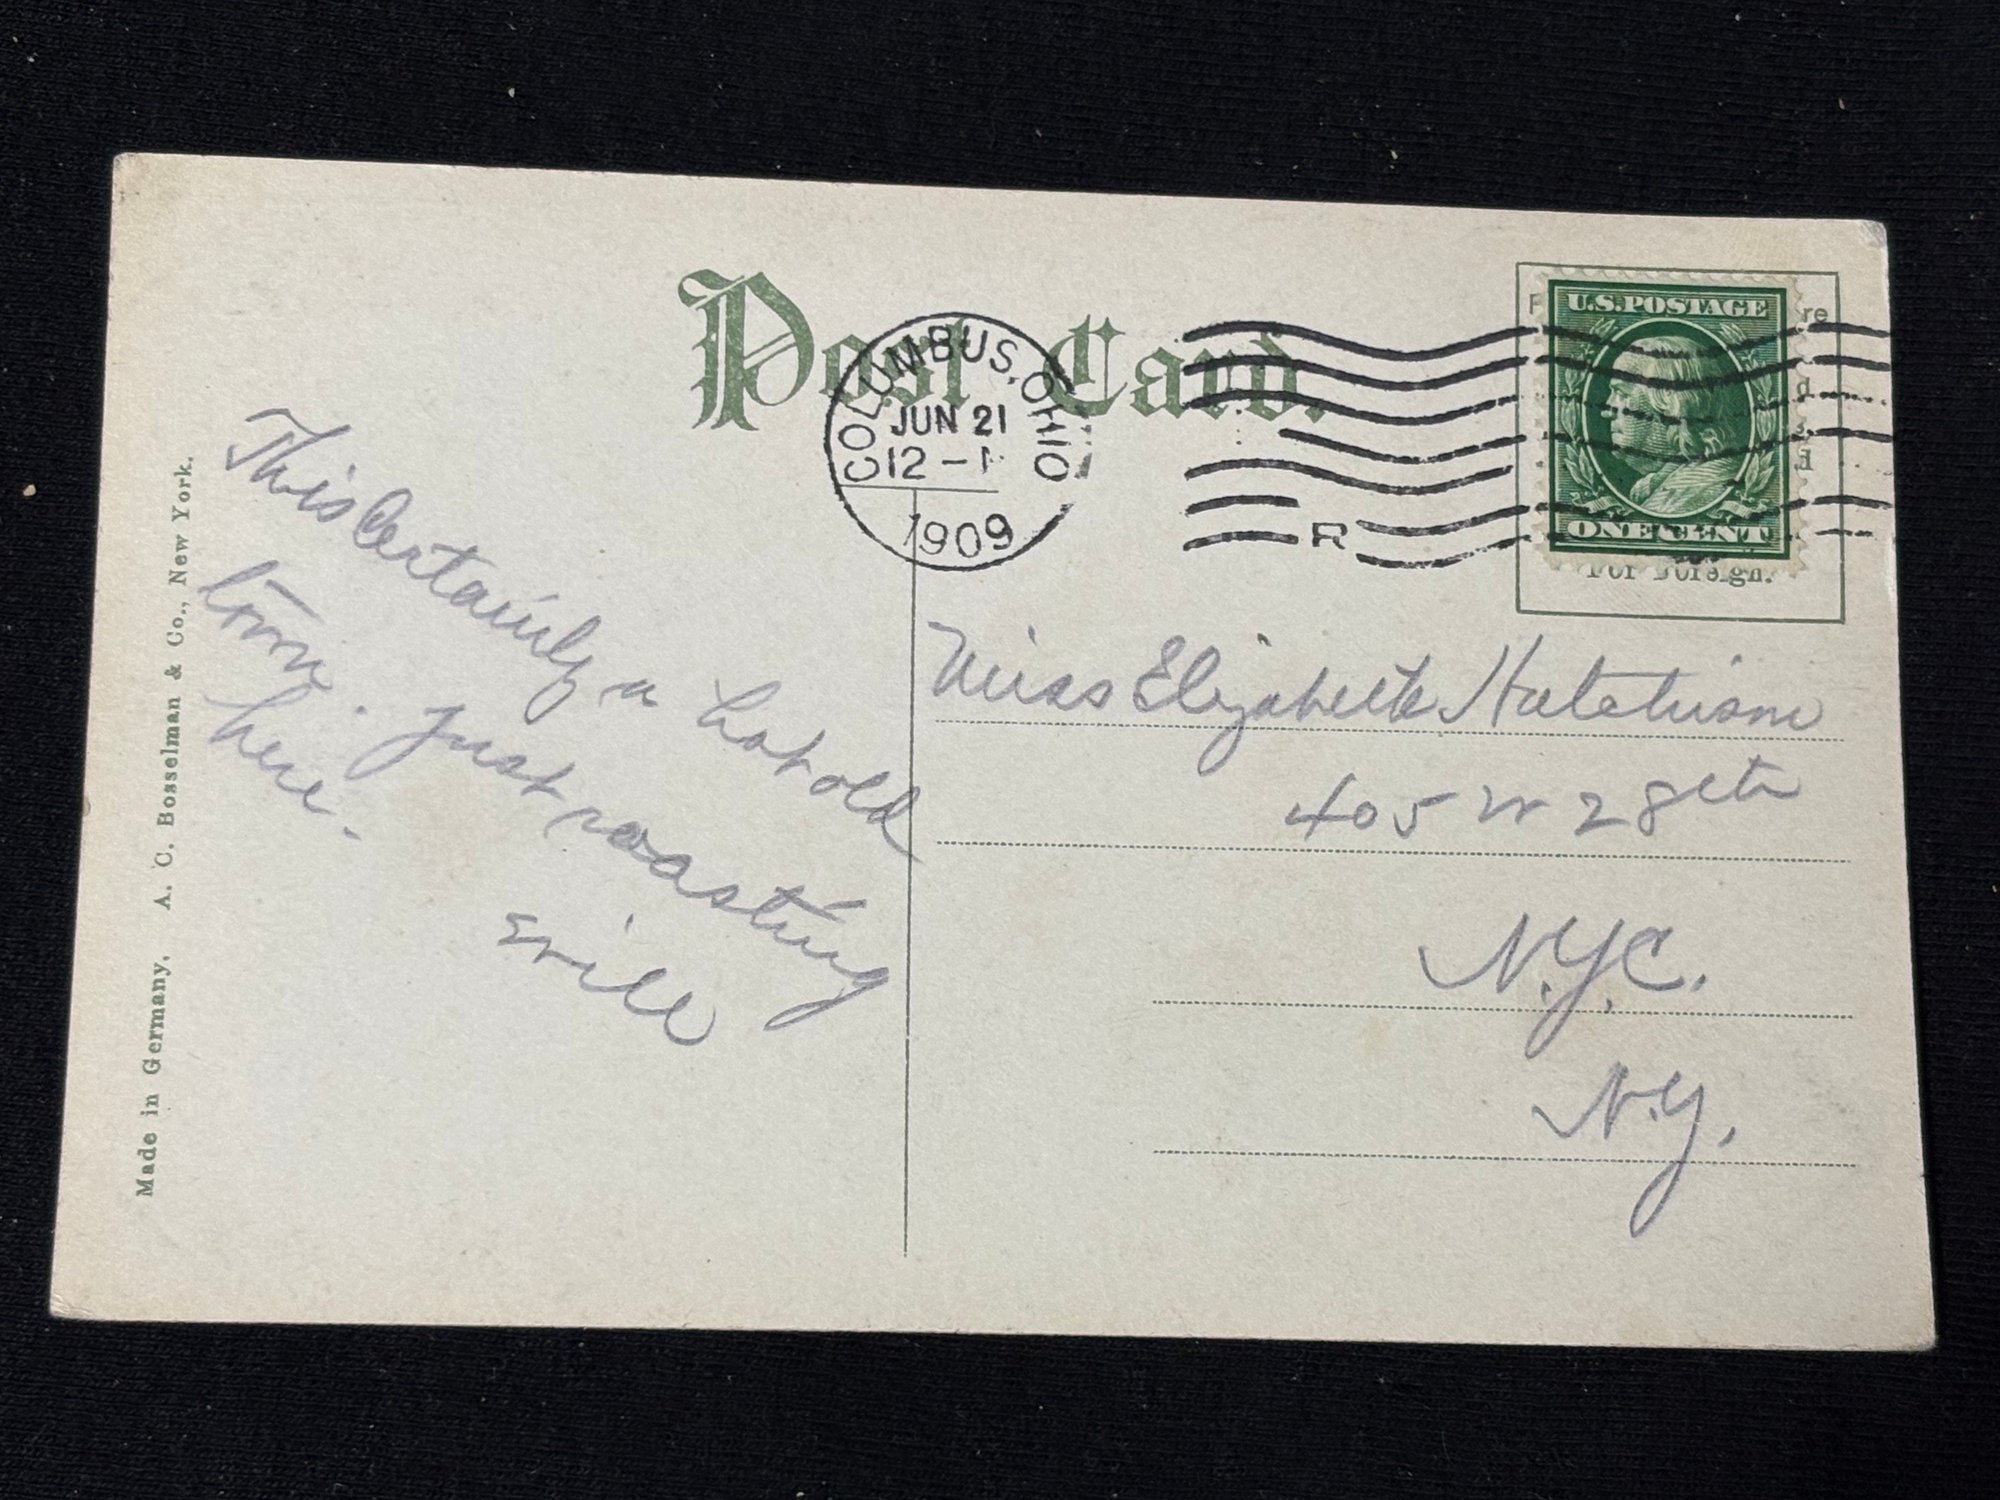 Post Card.
COLUMBUS, OHIO
JUN 21
12 - 1
1909
R
U.S. POSTAGE
ONE CENT
re
d
d
For Foreign.
This Certainly a hot old
town. Just roasting
here.
Will
Miss Elizabeth Hutchison
405 W 28th
N.Y.C.
N.Y.
Made in Germany. A. C. Bosselman & Co., New York.